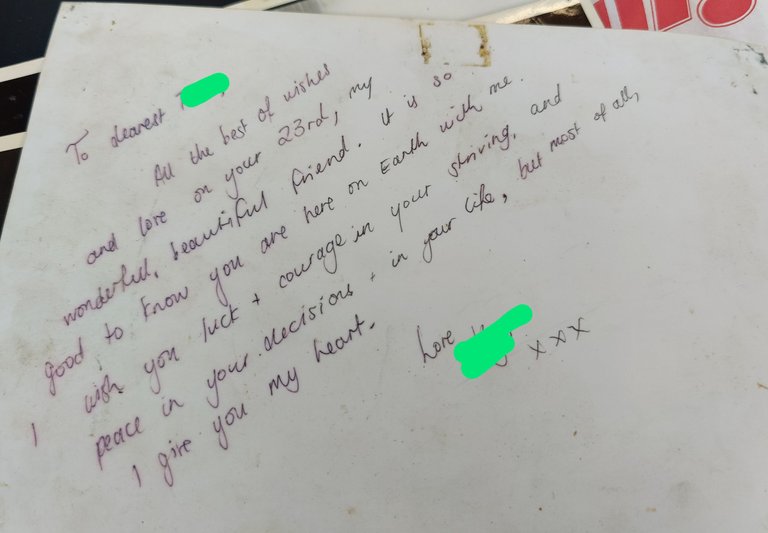 To dearest
All the best of wishes
and love on your 23rd, my
wonderful, beautiful friend. It is so
good to know you are here on Earth with me.
I wish you luck + courage in your striving, and
peace in your decisions + in your life, but most of all,
I give you my heart.
Love
x x x